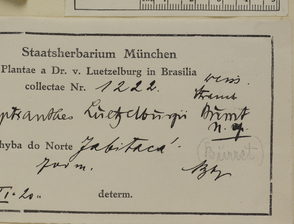 Staatsherbarium München
Plantae a Dr. v. Luetzelburg in Brasilia
collectae Nr. 1222.
Luetzelburgii Burret
n. sp.
hyba do Norte Jabitacá
Burret
determ.